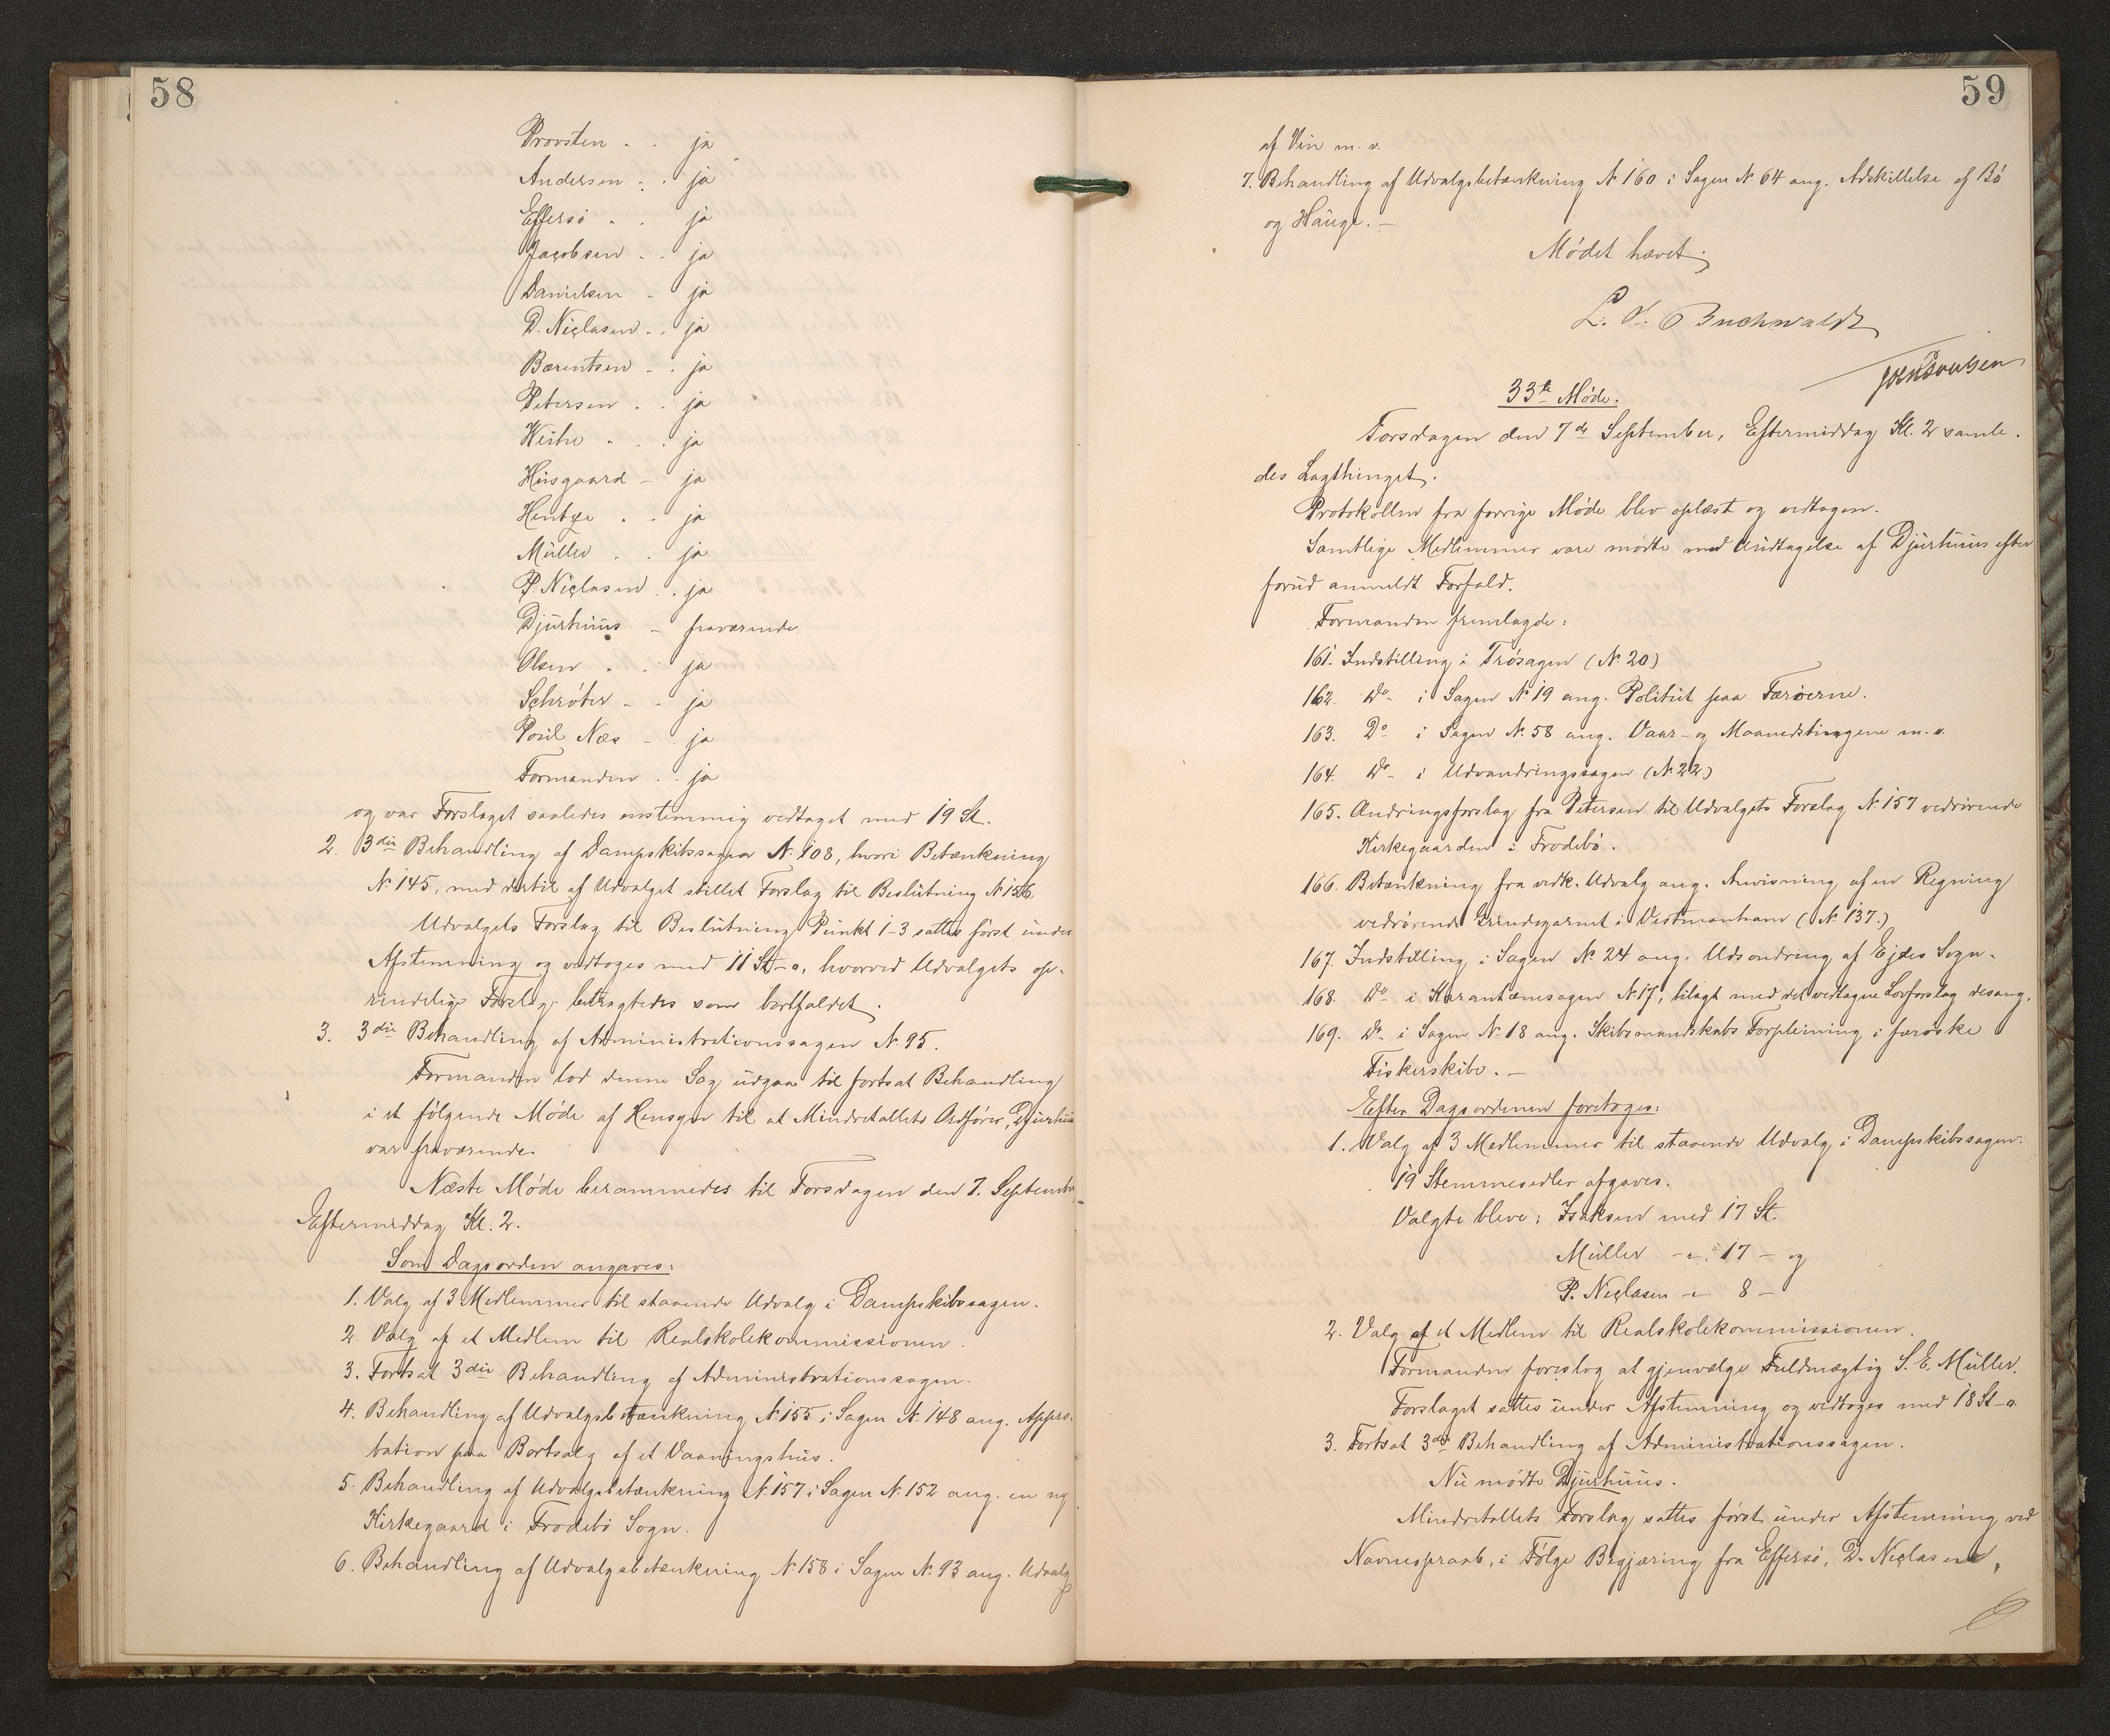 58
Provsten - - ja
Andersen - - ja
Effersö - - ja
Jacobsen - - ja
Danielsen - ja
D. Niclasen - - ja
Bærentsen - - ja
Petersen - - ja
Weihe - - - ja
Húsgaard - ja
Hentze - - ja
Müller - - ja
P. Niclasen - - ja
Djurhuus - fraværende
Olsen - - ja
Schröter - - ja
Poul Næs - - ja
Formanden - - ja
og var Forslaget saaledes enstemmig vedtaget med 19 St.
2. 3die Behandling af Dampskibssagen N. 108, hvori Betænkning
N. 145, med dertil af Udvalget stillet Forslag til Beslutning N. 156.
Udvalgets Forslag til Beslutning Punkt 1-3 sattes först under
Afstemning og vedtoges med 11 St - 0, hvorved Udvalgets op-
rindelige Forslag betragtedes som bortfaldet.
3. 3die Behandling af Administrationssagen N. 95.
Formanden lod denne Sag udgaa til fortsat Behandling
i et fölgende Möde af Hensyn til at Mindretallets Ordförer, Djurhuus
var fraværende.
Næste Möde berammedes til Torsdagen den 7. September,
Eftermiddag Kl. 2.
Som Dagsorden angaves:
1. Valg af 3 Medlemmer til staaende Udvalg i Dampskibssagen.
2. Valg af et Medlem til Realskolekommissionen.
3. Fortsat 3die Behandling af Administrationssagen.
4. Behandling af Udvalgsbetænkning N. 155 i Sagen N. 148 ang. Appro-
bation paa Bortsalg af et Vaaningshus.
5. Behandling af Udvalgsbetænkning N. 157 i Sagen N. 152 ang. en ny
Kirkegaard i Frodebö Sogn.
6. Behandling af Udvalgsbetænkning N. 158 i Sagen N. 93 ang. Udsalg
59
af Vin m. v.
7. Behandling af Udvalgsbetænkning N. 160 i Sagen N. 64 ang. Adskillelse af Bö
og Hauge. -
Mödet hævet.
L. Buchwaldt
33te Möde.
Torsdagen den 7de September, Eftermiddag Kl. 2 samle-
des Lagthinget.
Protokollen fra forrige Möde blev oplæst og vedtagen.
Samtlige Medlemmer vare mödte med Undtagelse af Djurhuus efter
forud anmeldt Forfald.
Formanden fremlagde:
161. Indstilling i Trösagen (N. 20)
162. Do - i Sagen N. 19 ang. Politiet paa Færöerne.
163. Do - i Sagen N. 58 ang. Vaar- og Maanedstingene m. v.
164. Do - i Udvandringssagen (N. 22)
165. Ændringsforslag fra Petersen til Udvalgets Forslag N. 157 vedrörende
Kirkegaarden i Frodebö.
166. Betænkning fra vedk. Udvalg ang. Anvisning af en Regning
vedrörende Grindegarnet i Vestmanhavn (N. 137.)
167. Indstilling i Sagen N. 24 ang. Udsondring af Ejdes Sogn.
168. Do - i Karantænesagen N. 17, bilagt med det vedtagne Lovforslag desang.
169. Do - i Sagen N. 18 ang. Skibsmandskabs Forpleining i færöske
Fiskerskibe. -
Efter Dagsordenen foretoges:
1. Valg af 3 Medlemmer til staaende Udvalg i Dampskibssagen.
19 Stemmesedler afgaves.
Valgte bleve: Isaksen med 17 St.
Müller - " - 17 - og
P. Niclasen - " - 8 -
2. Valg af et Medlem til Realskolekommissionen.
Formanden foreslog at gjenvælge Fuldmægtig S. E. Müller.
Forslaget sattes under Afstemning og vedtoges med 18 St - 0.
3. Fortsat 3die Behandling af Administrationssagen.
Nu mödte Djurhuus.
Mindretallets Forslag sattes först under Afstemning ved
Navneopraab, i Fölge Begjæring fra Effersö, D. Niclasen,